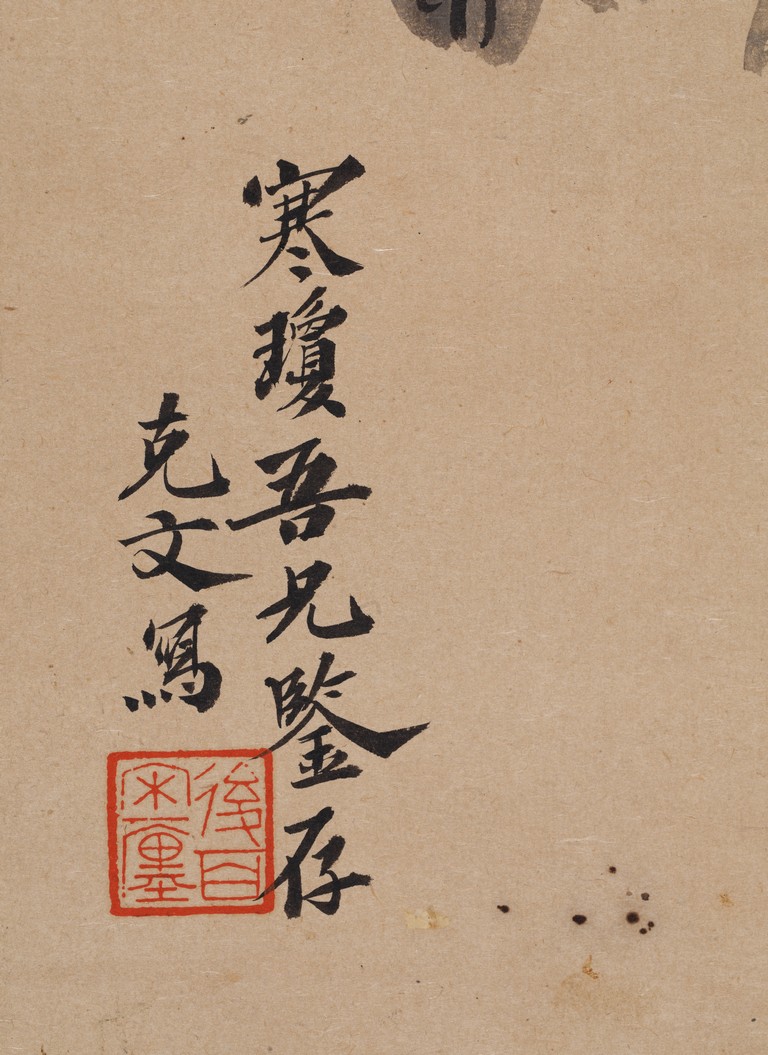 寒瓊吾兄鑒存
克文寫
後百
宋一廛